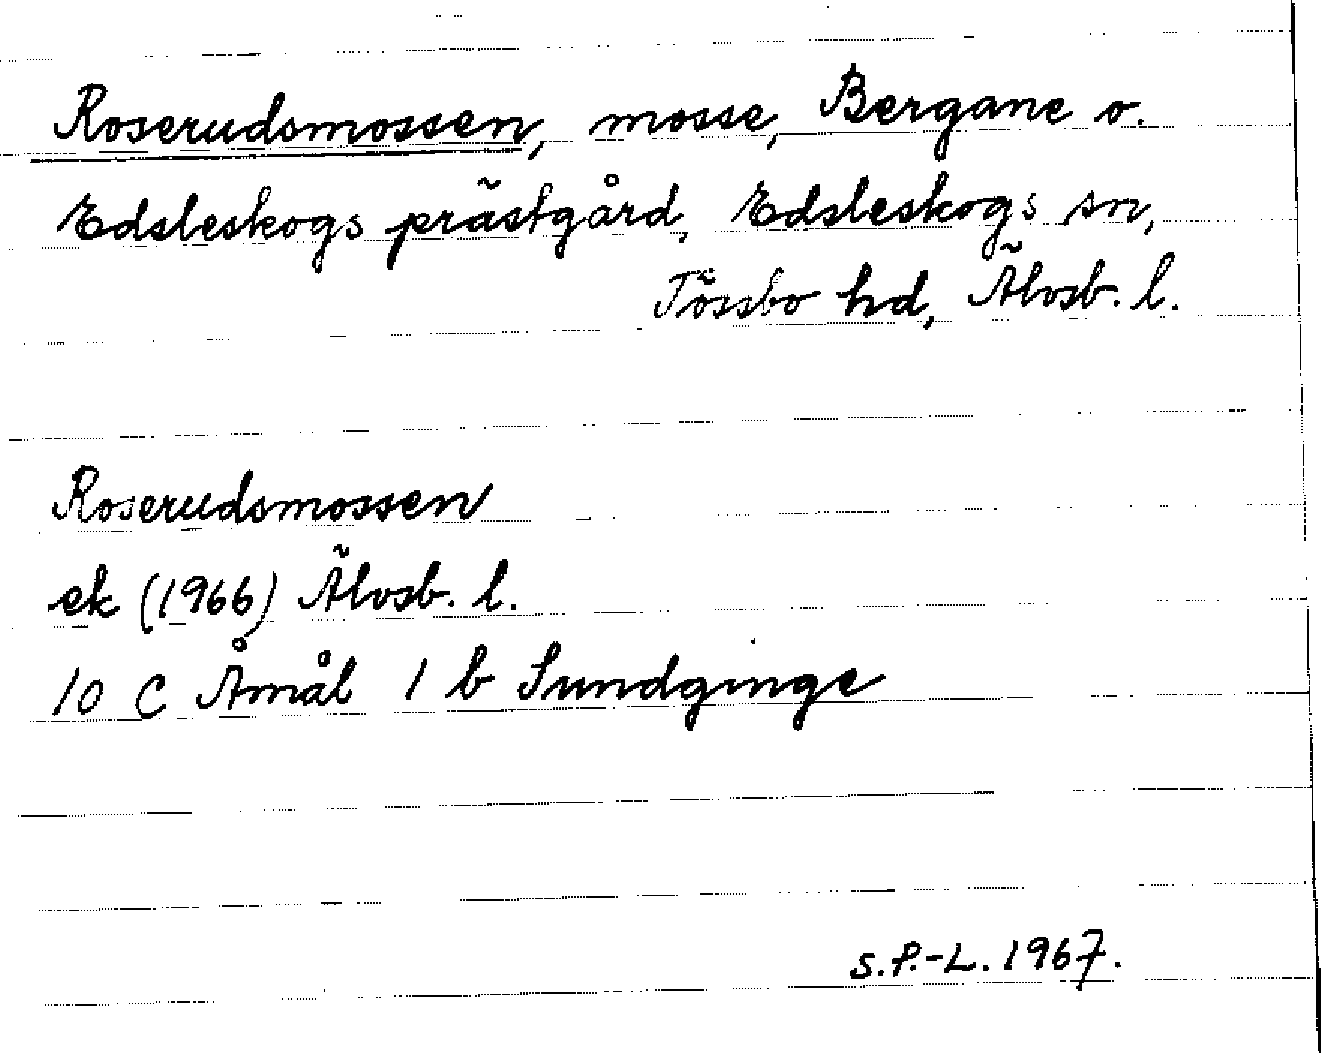 Roserudsmossen, mosse, Bergane o.
Edsleskogs prästgård, Edsleskogs sn,
Tössbo hd, Älvsb. l.
Roserudsmossen
ek (1966) Älvsb. l.
10 C Åmål 1 b Sundginge
S.P.-L. 1967.